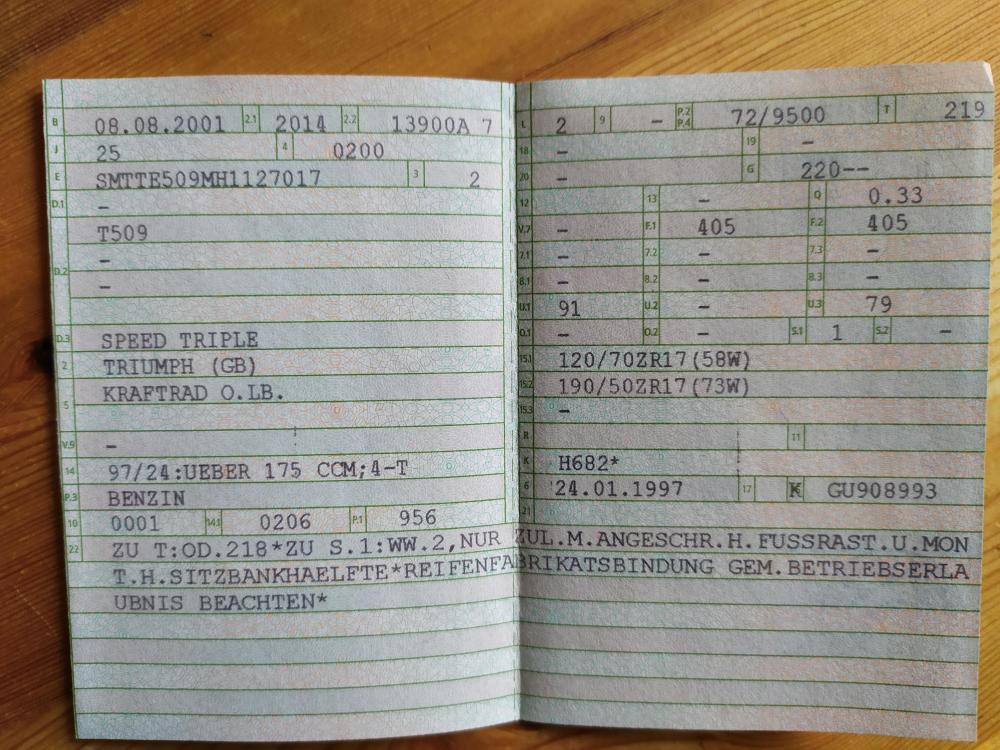 B 08.08.2001 2.1 2014 2.2 13900A 7
J 25 4 0200
E SMTTE509MH1127017 3 2
D.1 –
T509
D.2 –
–
D.3 SPEED TRIPLE
2 TRIUMPH (GB)
5 KRAFTRAD O.LB.
V.9 –
14 97/24:UEBER 175 CCM;4-T
P.3 BENZIN
10 0001 14.1 0206 P.1 956
L 2 9 – P.2 P.4 72/9500 T 219
18 – 19 –
20 – G 220--
12 13 – Q 0.33
V.7 – F.1 405 F.2 405
7.1 – 7.2 – 7.3 –
8.1 – 8.2 – 8.3 –
U.1 91 U.2 – U.3 79
O.1 – O.2 – S.1 1 S.2 –
15.1 120/70ZR17(58W)
15.2 190/50ZR17(73W)
15.3 –
R 11
K H682*
6 24.01.1997 17 K GU908993
21
22 ZU T:OD.218*ZU S.1:WW.2,NUR ZUL.M.ANGESCHR.H.FUSSRAST.U.MON
T.H.SITZBANKHAELFTE*REIFENFABRIKATSBINDUNG GEM.BETRIEBSERLA
UBNIS BEACHTEN*